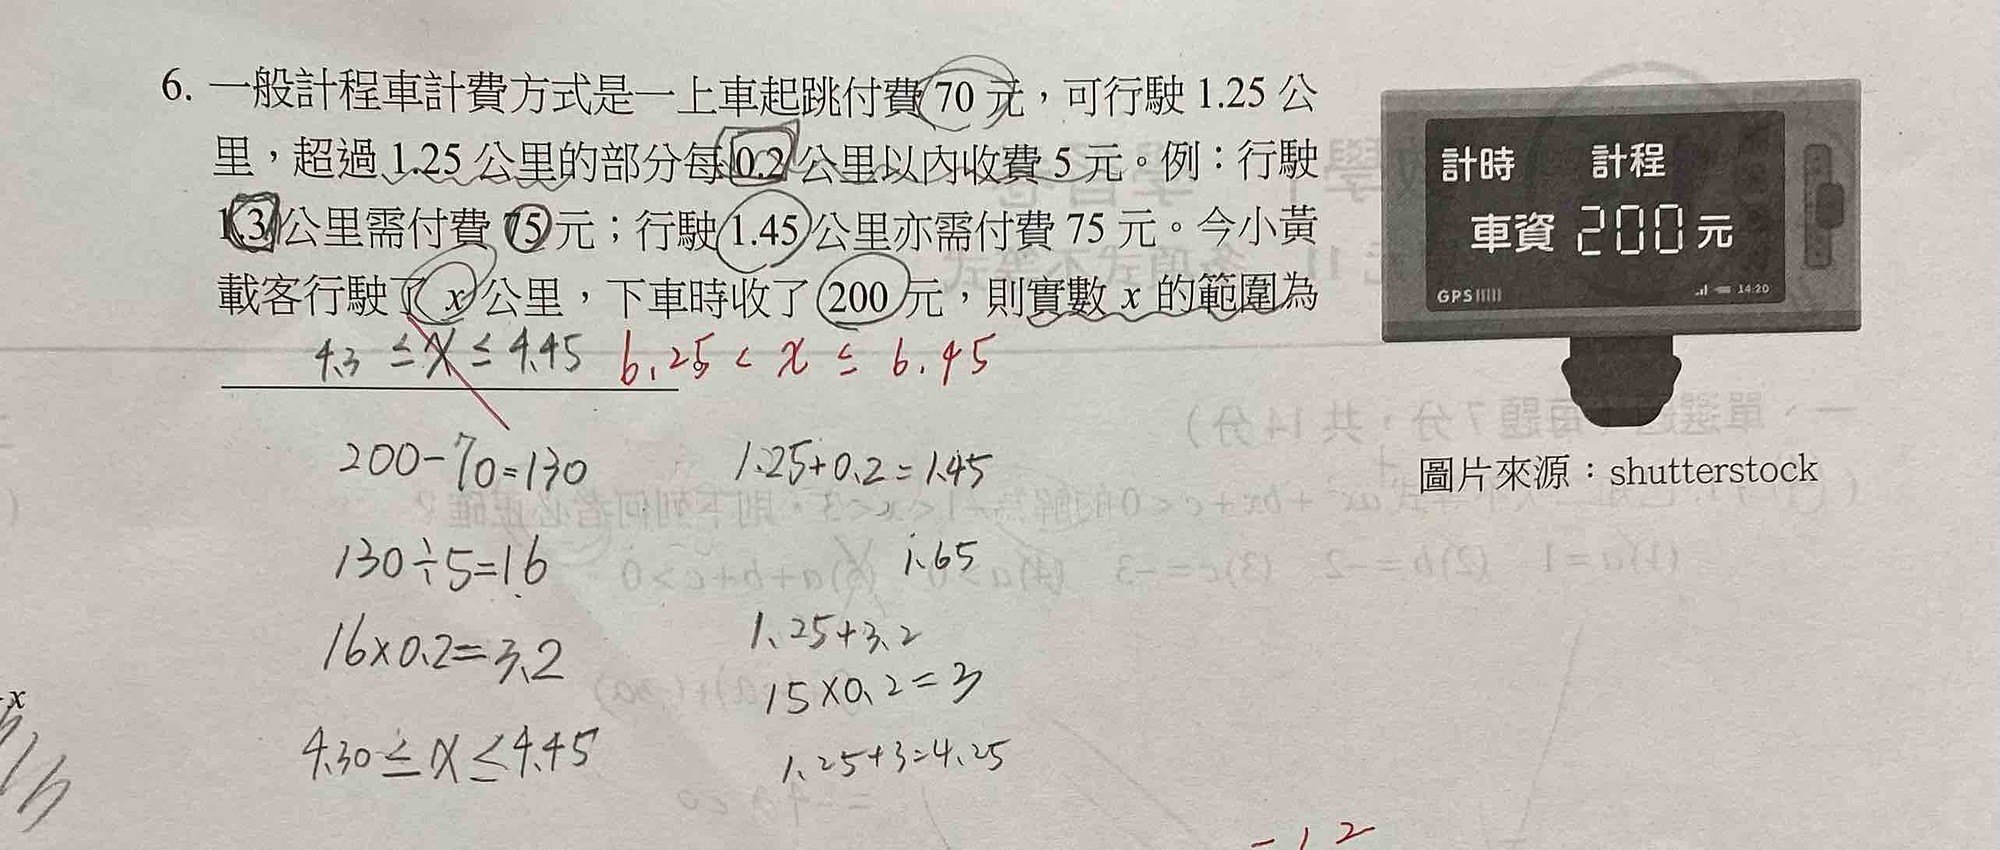 6. 一般計程車計費方式是一上車起跳付費 70 元，可行駛 1.25 公
里，超過 1.25 公里的部分每 0.2 公里以內收費 5 元。例：行駛
1.3 公里需付費 75 元；行駛 1.45 公里亦需付費 75 元。今小黃
載客行駛了 x 公里，下車時收了 200 元，則實數 x 的範圍為
4.3 ≤ x ≤ 4.45 6.25 < x ≤ 6.45
計時 計程
車資 200 元
GPS
14:20
圖片來源：shutterstock
200-70=130
130÷5=16
16×0.2=3.2
4.30 ≤ x ≤ 4.45
1.25+0.2=1.45
1.65
1.25+3.2
15×0.2=3
1.25+3=4.25
x